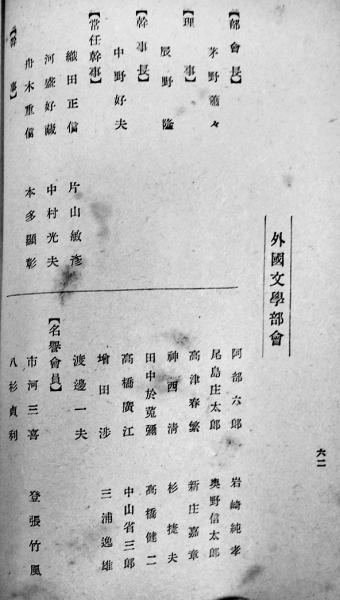 外國文學部會
【部會長】
茅野蕭々
【理事】
辰野隆
【幹事長】
中野好夫
【常任幹事】
織田正信 片山敏彥
河盛好藏 中村光夫
舟木重信 本多顯彰
事】
阿部六郎 岩崎純孝
尾島庄太郎 奥野信太郎
高津春繁 新庄嘉章
神西清 杉捷夫
田中於菟彌 高橋健二
高橋廣江 中山省三郎
增田涉 三浦逸雄
渡邊一夫
【名譽會員】
市河三喜 登張竹風
八杉貞利
六二